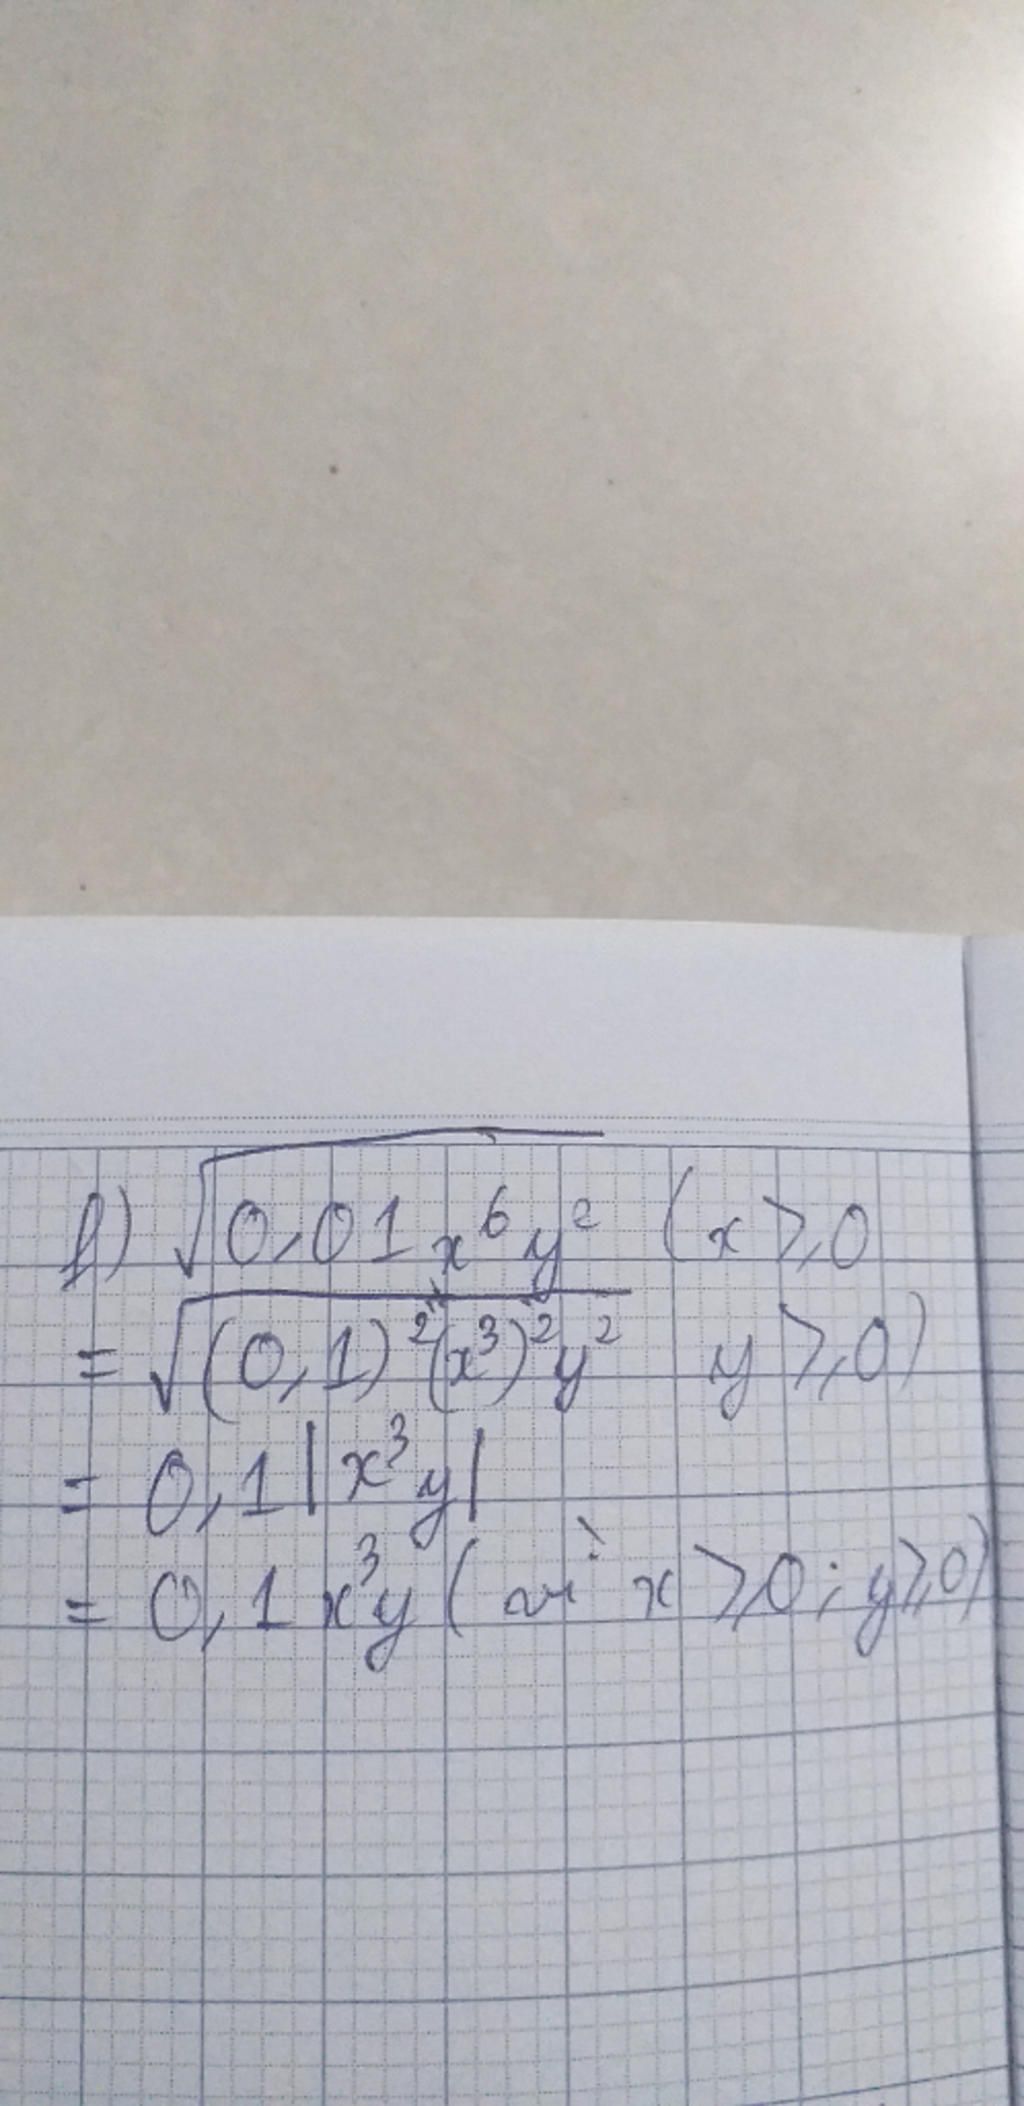 f) √0,01x⁶y² (x ⩾ 0
= √(0,1)²(x³)²y² y ⩾ 0)
= 0,1|x³y|
= 0,1x³y (vì x ⩾ 0; y ⩾ 0)